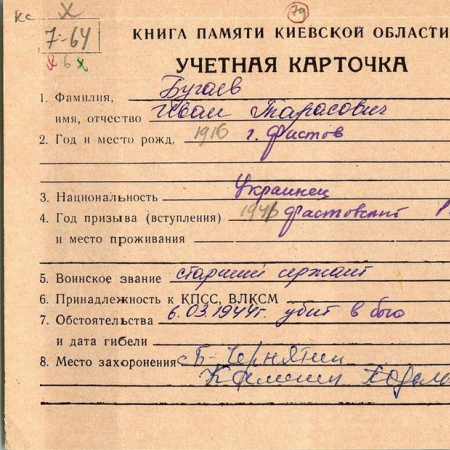 кс X
79
7-64
х 6 х
КНИГА ПАМЯТИ КИЕВСКОЙ ОБЛАСТИ
УЧЕТНАЯ КАРТОЧКА
1. Фамилия, Бугаев
имя, отчество Иван Тарасович
2. Год и место рожд. 1916 г. Фастов
3. Национальность Украинец
4. Год призыва (вступления) Фастовский Р
и место проживания
5. Воинское звание старший сержант
6. Принадлежность к КПСС, ВЛКСМ
7. Обстоятельства 6.03.1944г. убит в бою
и дата гибели
8. Место захоронения с Б-Чернятин